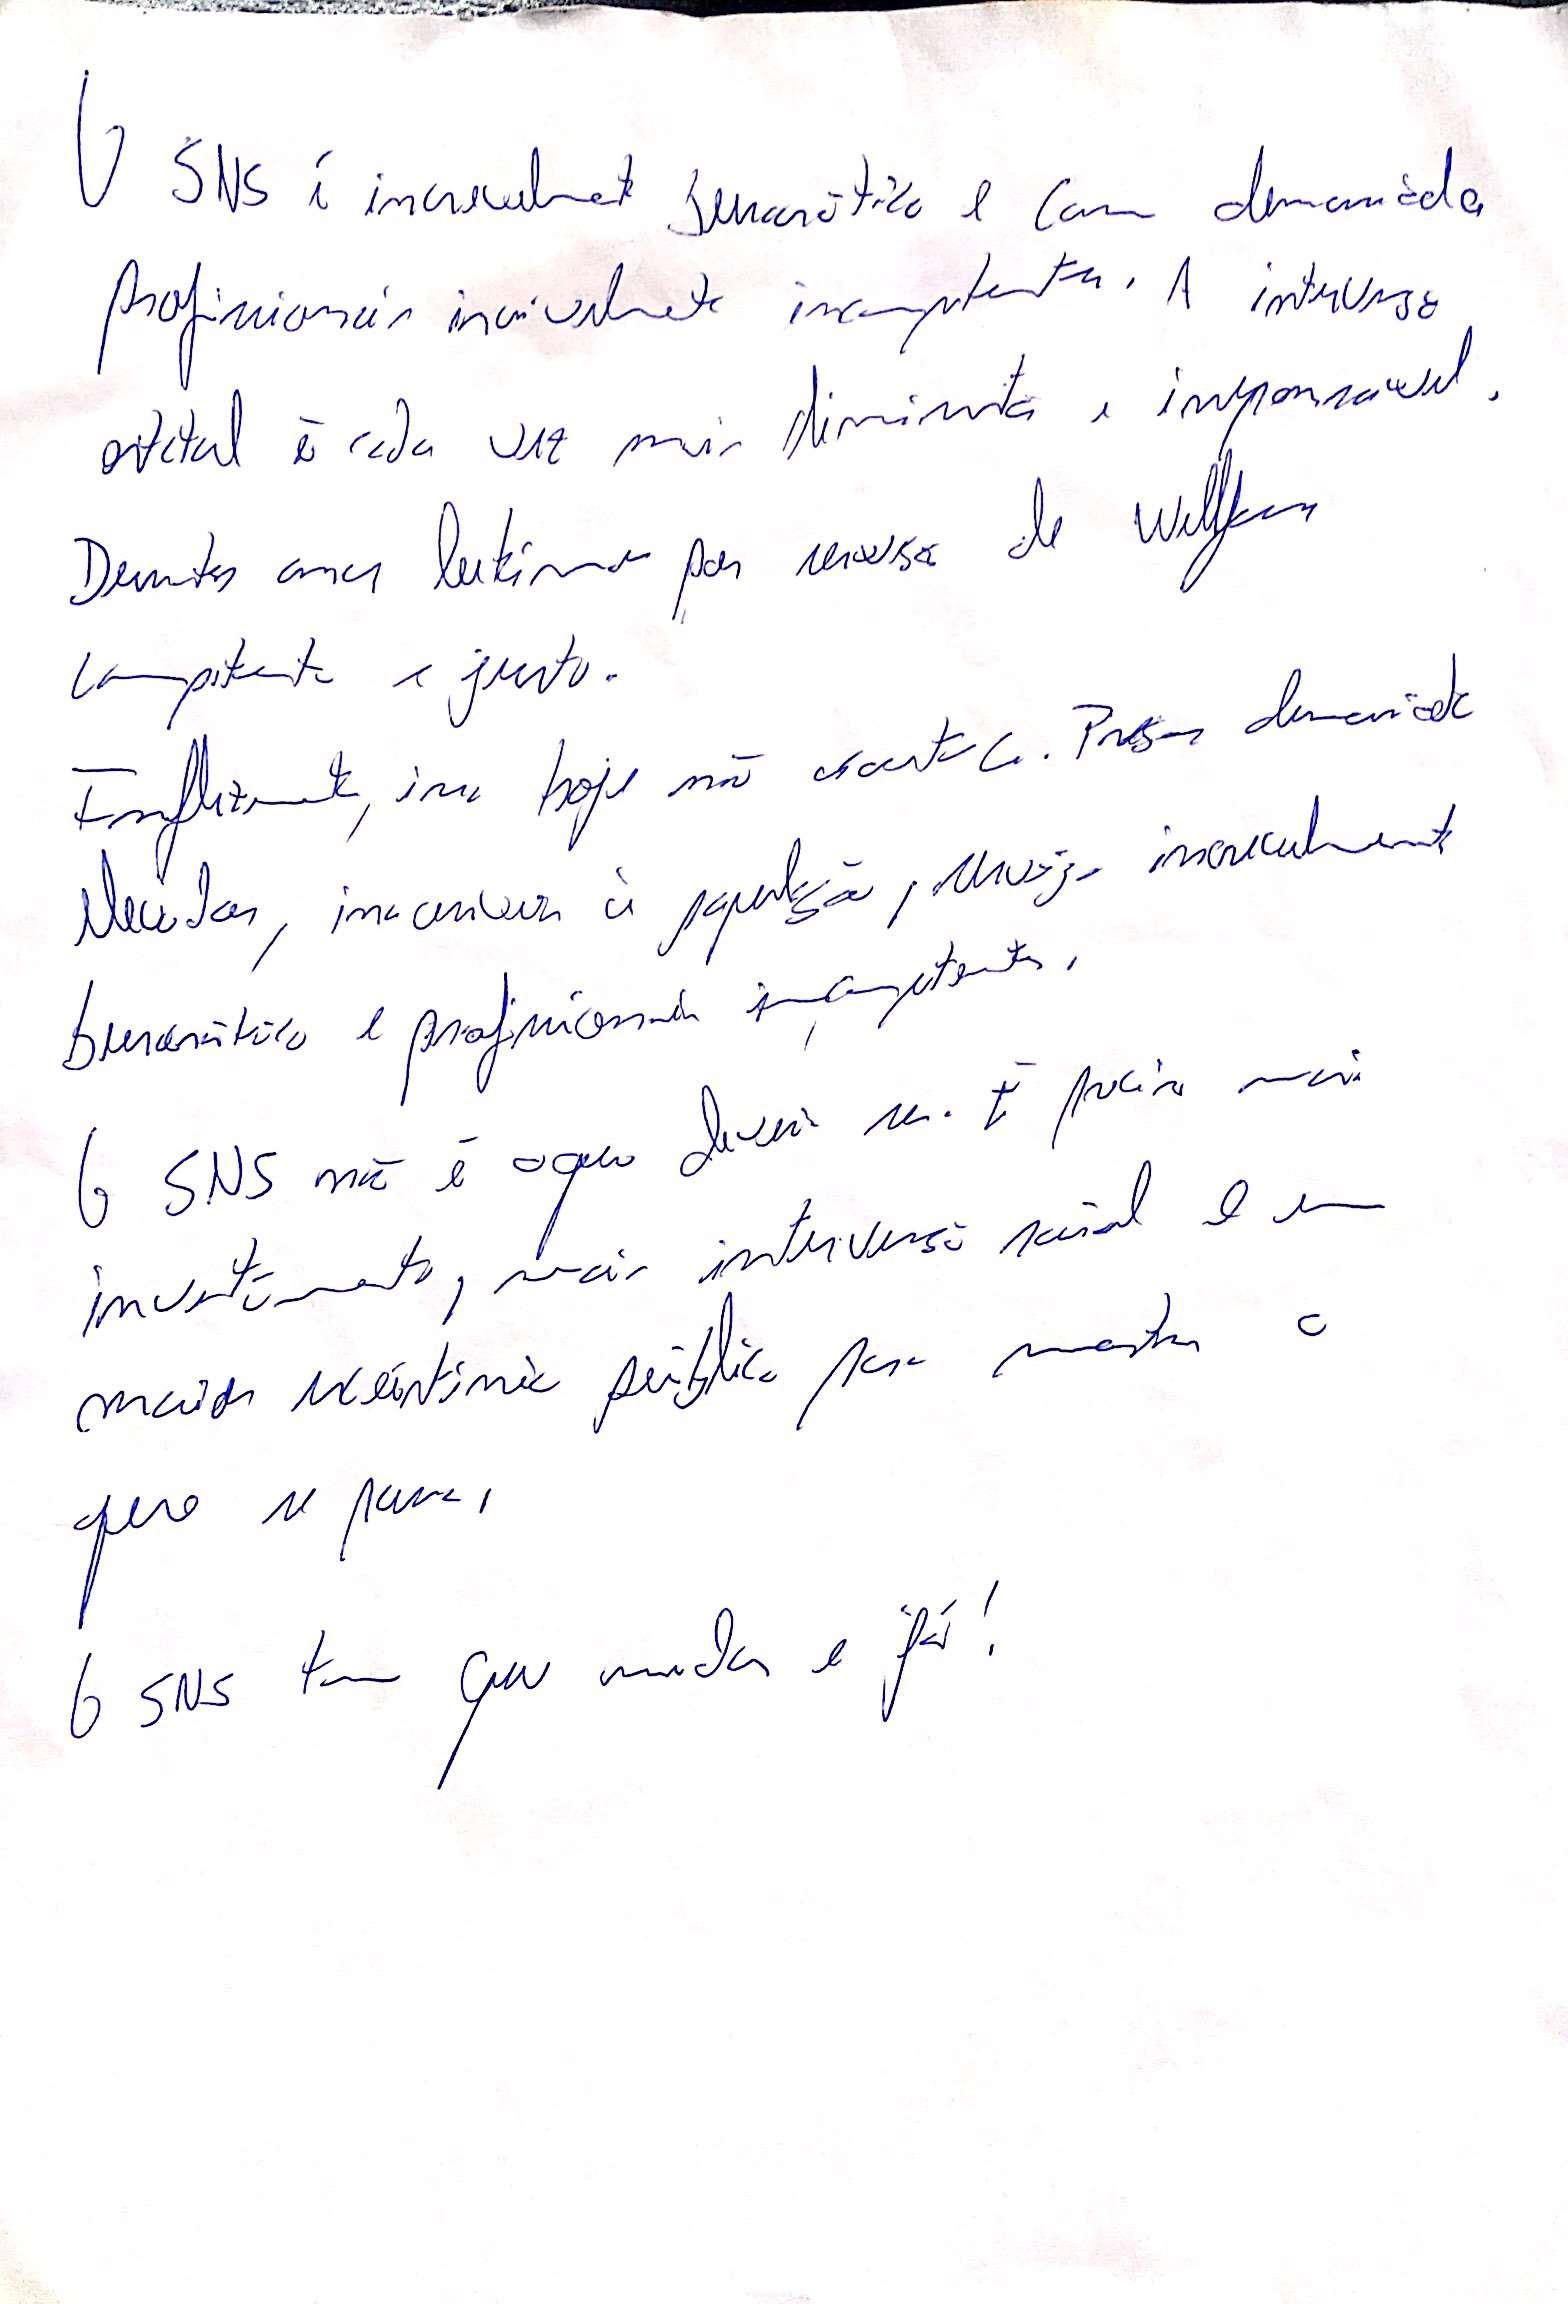 O SNS é incrivelmente burocrático e com demasiada
profissionais incrivelmente incompetentes. A intervenção
estatal é cada vez mais diminuta e irresponsável.
Devemos por serviços de Welfare
competente e justo.
Infelizmente, isso hoje não acontece. Preços demasiado
elevados, inacessíveis à população, serviço incrivelmente
burocrático e profissionais incompetentes.
O SNS não é o que devia ser. É preciso mais
investimento, mais intervenção social e um
maior público para mostrar o
que se passa.
O SNS tem que mudar e já!